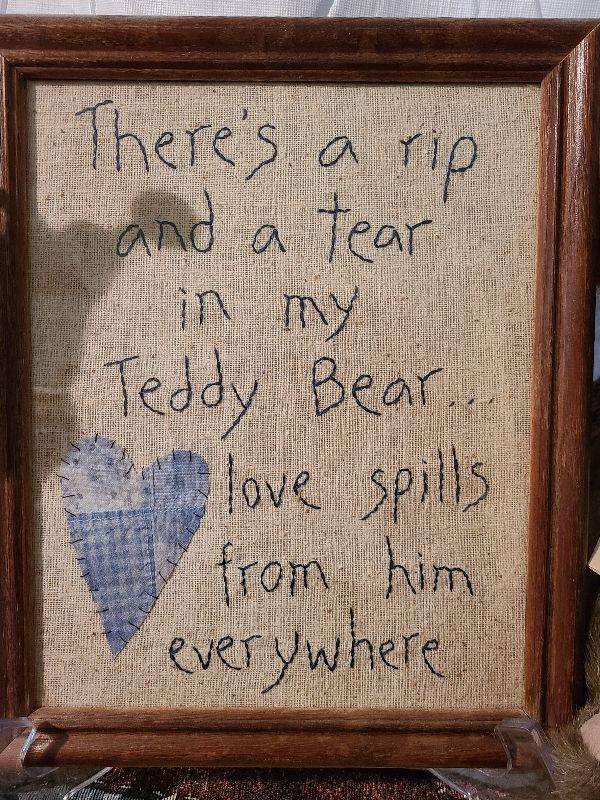 There's a rip
and a tear
in my
Teddy Bear...
love spills
from him
everywhere